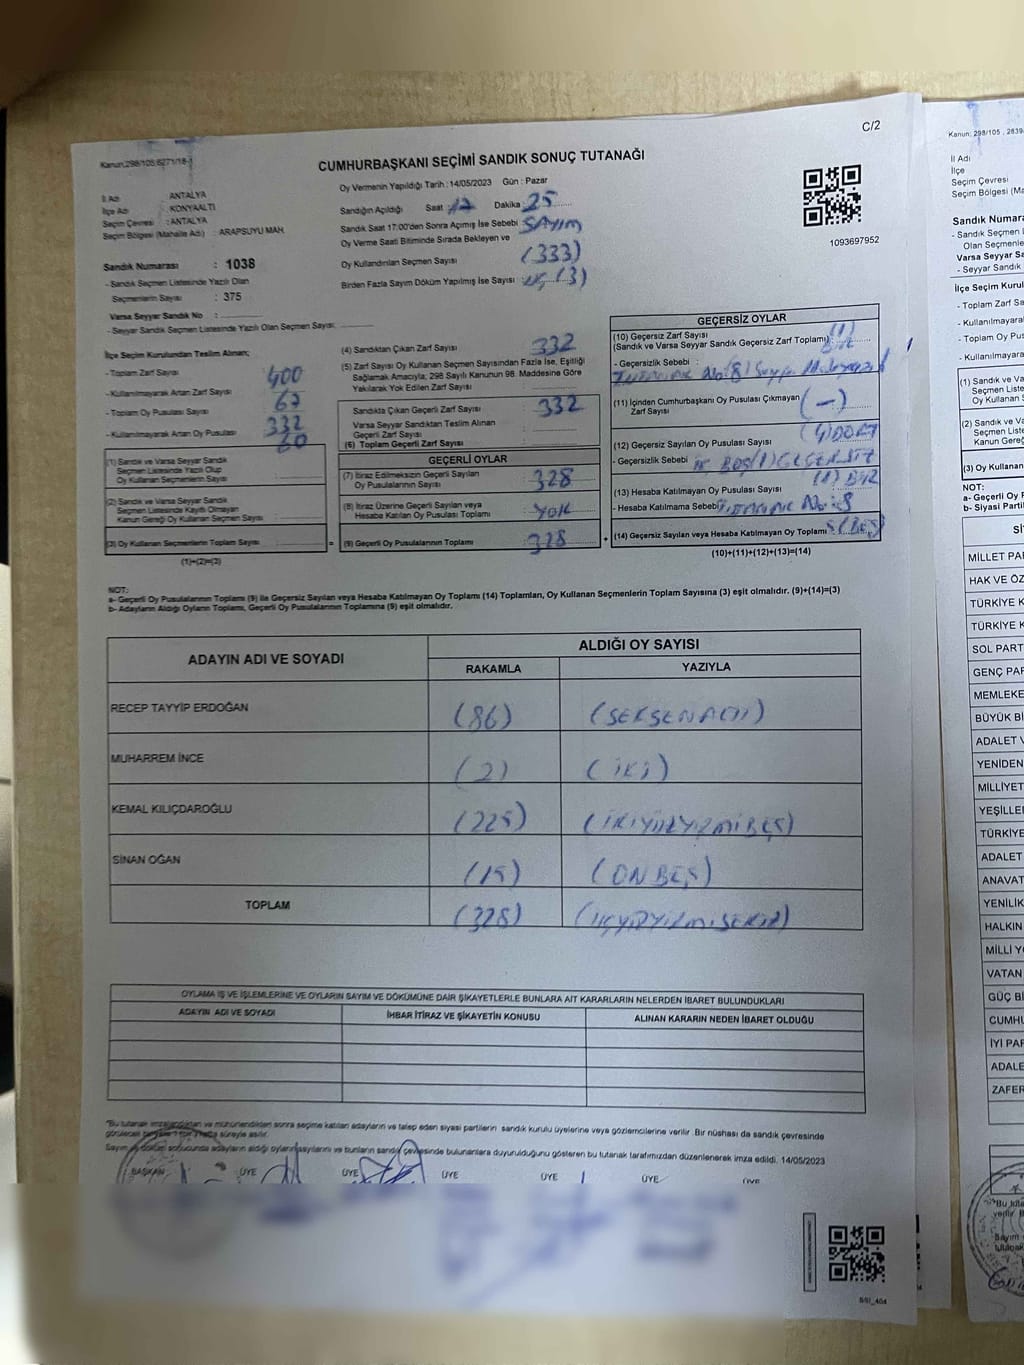 C/2
Kanun:298/105,6271/18-1
CUMHURBAŞKANI SEÇİMİ SANDIK SONUÇ TUTANAĞI
İl Adı : ANTALYA
İlçe Adı : KONYAALTI
Seçim Çevresi : ANTALYA
Seçim Bölgesi (Mahalle Adı) : ARAPSUYU MAH.
Sandık Numarası : 1038
- Sandık Seçmen Listesinde Yazılı Olan
Seçmenlerin Sayısı : 375
Varsa Seyyar Sandık No :
- Seyyar Sandık Seçmen Listesinde Yazılı Olan Seçmen Sayısı
Oy Vermenin Yapıldığı Tarih : 14/05/2023 Gün : Pazar
Sandığın Açıldığı Saat 17 Dakika 25
Sandık Saat 17:00'den Sonra Açılmış İse Sebebi SAYIM
Oy Verme Saati Bitiminde Sırada Bekleyen ve
Oy Kullandırılan Seçmen Sayısı (333)
Birden Fazla Sayım Döküm Yapılmış İse Sayısı : üç (3)
1093697952
İlçe Seçim Kurulundan Teslim Alınan;
- Toplam Zarf Sayısı 400
- Kullanılmayarak Artan Zarf Sayısı 67
- Toplam Oy Pusulası Sayısı 332
- Kullanılmayarak Artan Oy Pusulası 60
(1) Sandık ve Varsa Seyyar Sandık
Seçmen Listesinde Yazılı Olup
Oy Kullanan Seçmenlerin Sayısı
(2) Sandık ve Varsa Seyyar Sandık
Seçmen Listesinde Kayıtlı Olmayan
Kanun Gereği Oy Kullanan Seçmen Sayısı
(3) Oy Kullanan Seçmenlerin Toplam Sayısı
(1)+(2)=(3)
(4) Sandıktan Çıkan Zarf Sayısı 332
(5) Zarf Sayısı Oy Kullanan Seçmen Sayısından Fazla İse, Eşitliği
Sağlamak Amacıyla, 298 Sayılı Kanunun 98. Maddesine Göre
Yakılarak Yok Edilen Zarf Sayısı
Sandıkta Çıkan Geçerli Zarf Sayısı 332
Varsa Seyyar Sandıktan Teslim Alınan
Geçerli Zarf Sayısı
(6) Toplam Geçerli Zarf Sayısı
GEÇERLİ OYLAR
(7) İtiraz Edilmeksizin Geçerli Sayılan
Oy Pusulalarının Sayısı 328
(8) İtiraz Üzerine Geçerli Sayılan veya
Hesaba Katılan Oy Pusulası Toplamı YOK
(9) Geçerli Oy Pusulalarının Toplamı 328
GEÇERSİZ OYLAR
(10) Geçersiz Zarf Sayısı (1)
(Sandık ve Varsa Seyyar Sandık Geçersiz Zarf Toplamı) BİR
- Geçersizlik Sebebi :
(11) İçinden Cumhurbaşkanı Oy Pusulası Çıkmayan
Zarf Sayısı (-)
(12) Geçersiz Sayılan Oy Pusulası Sayısı (4) DÖRT
- Geçersizlik Sebebi
(13) Hesaba Katılmayan Oy Pusulası Sayısı (1) BİR
- Hesaba Katılmama Sebebi
(14) Geçersiz Sayılan veya Hesaba Katılmayan Oy Toplamı 5 (BEŞ)
(10)+(11)+(12)+(13)=(14)
NOT:
a- Geçerli Oy Pusulalarının Toplamı (9) ile Geçersiz Sayılan veya Hesaba Katılmayan Oy Toplamı (14) Toplamları, Oy Kullanan Seçmenlerin Toplam Sayısına (3) eşit olmalıdır. (9)+(14)=(3)
b- Adayların Aldığı Oyların Toplamı, Geçerli Oy Pusulalarının Toplamına (9) eşit olmalıdır.
ADAYIN ADI VE SOYADI ALDIĞI OY SAYISI
RAKAMLA YAZIYLA
RECEP TAYYİP ERDOĞAN (86) (SEKSENALTI)
MUHARREM İNCE (2) (İKİ)
KEMAL KILIÇDAROĞLU (225) (İKİYÜZYİRMİBEŞ)
SİNAN OĞAN (15) (ONBEŞ)
TOPLAM (328) (ÜÇYÜZYİRMİSEKİZ)
OYLAMA İŞ VE İŞLEMLERİNE VE OYLARIN SAYIM VE DÖKÜMÜNE DAİR ŞİKAYETLERLE BUNLARA AİT KARARLARIN NELERDEN İBARET BULUNDUKLARI
ADAYIN ADI VE SOYADI İHBAR İTİRAZ VE ŞİKAYETİN KONUSU ALINAN KARARIN NEDEN İBARET OLDUĞU
"Bu tutanak imzalandıktan ve mühürlendikten sonra seçime katılan adayların ve talep eden siyasi partilerin sandık kurulu üyelerine veya gözlemcilerine verilir. Bir nüshası da sandık çevresinde
süreyle asılır.
Sayım ve döküm sonucunda adayların aldığı oyların sayılarını ve bunların sandık çevresinde bulunanlara duyurulduğunu gösteren bu tutanak tarafımızdan düzenlenerek imza edildi. 14/05/2023
BAŞKAN ÜYE ÜYE ÜYE ÜYE ÜYE ÜYE
Kanun: 298/105
İl Adı
İlçe
Seçim Çevresi
Seçim Bölgesi
Sandık Numara
- Sandık Seçmen
Olan Seçmenle
Varsa Seyyar Sa
- Seyyar Sandık
İlçe Seçim Kurul
- Toplam Zarf Sa
- Kullanılmayara
- Toplam Oy Pusu
- Kullanılmayara
(1) Sandık ve Va
Seçmen Liste
Oy Kullanan
(2) Sandık ve Va
Seçmen Liste
Kanun Gereğ
(3) Oy Kullanan
NOT:
a- Geçerli Oy P
b- Siyasi Partil
MİLLET PA
HAK VE ÖZ
TÜRKİYE K
TÜRKİYE K
SOL PART
GENÇ PAR
MEMLEKE
BÜYÜK Bİ
ADALET V
YENİDEN
MİLLİYET
YEŞİLLE
TÜRKİYE
ADALET
ANAVAT
YENİLİK
HALKIN
MİLLİ Y
VATAN
GÜÇ B
CUMHU
İYİ PAR
ADALE
ZAFER